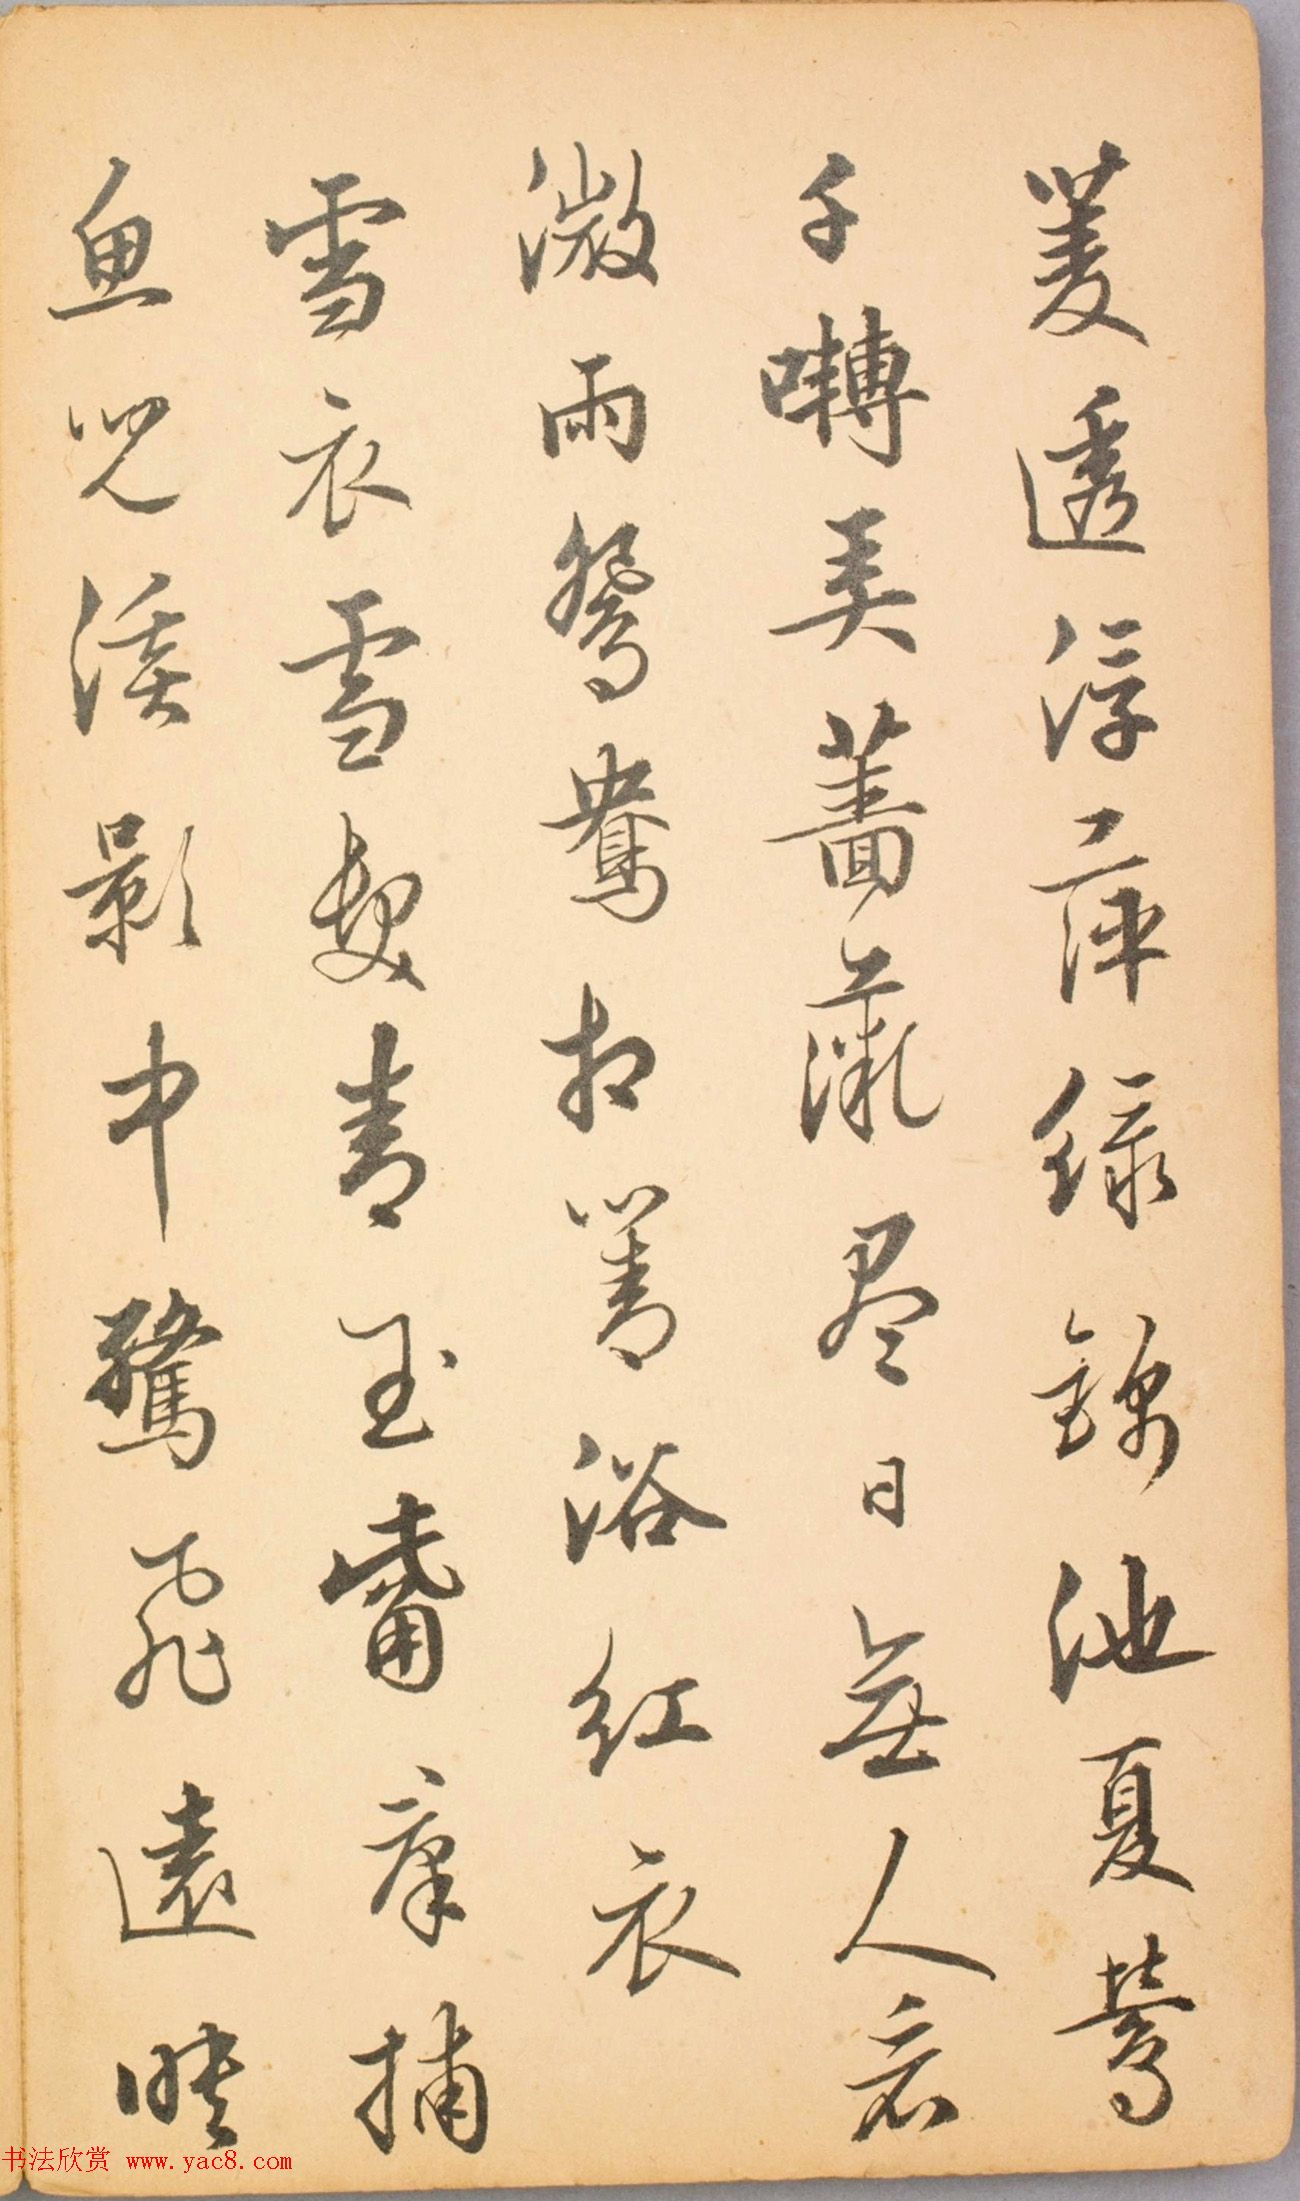 菱透浮萍綠錦池夏鶯
千囀弄薔薇盡日無人看
微雨鴛鴦相對浴紅衣
雪衣雪髮青玉觜群捕
魚兒溪影中驚飛遠映
书法欣赏 www.yac8.com